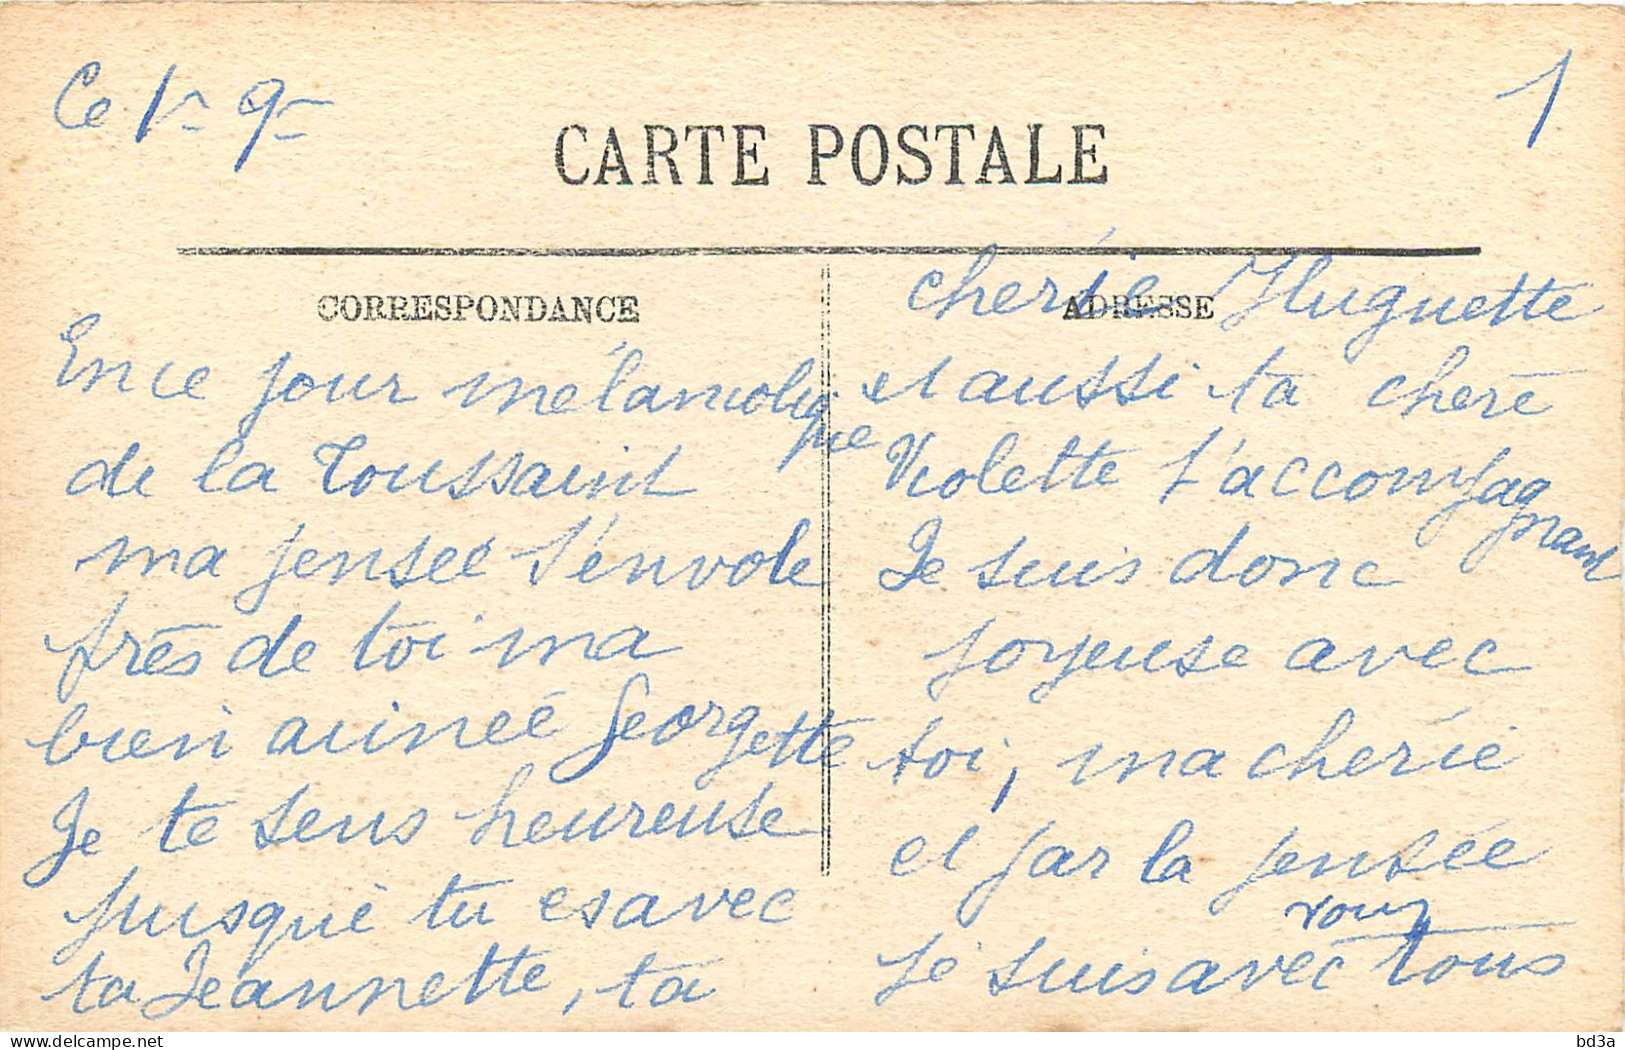 Ce 1r 9r
1
CARTE POSTALE
CORRESPONDANCE
En ce jour mélancolique
de la Toussaint
ma pensée s'envole
près de toi ma
bien aimée Georgette
Je te sens heureuse
puisque tu es avec
ta Jeannette, ta
ADRESSE
cherie Huguette
et aussi ta chere
Violette t'accompagnant
Je suis donc
joyeuse avec
toi, ma cherie
et par la pensée
vous
je suis avec tous
delcampe.net
bd3a